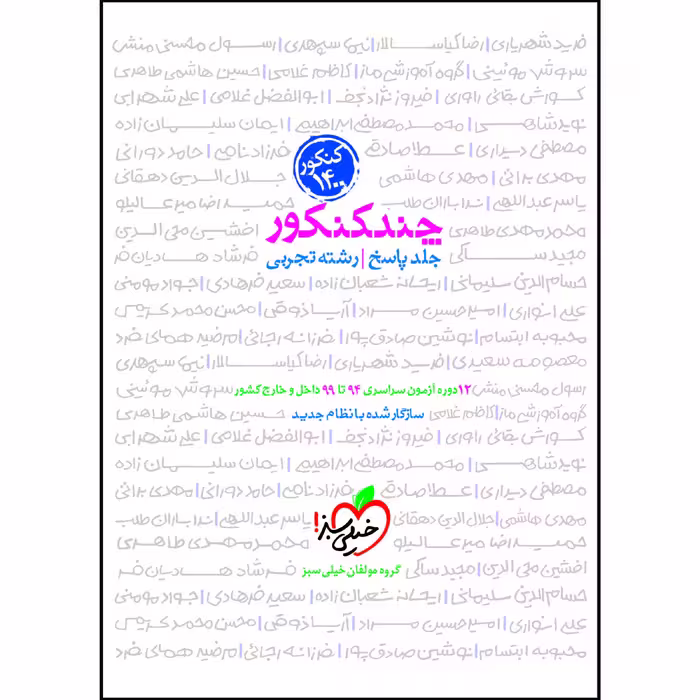 فرید شهریاری | رضا کیاسالار | نیما سپهری | رسول محسنی منش
سروش موئینی | گروه آموزشی ماز | کاظم غلامی | حسین هاشمی طاهری
کورش بقائی راوری | فیروز نژادنجف | ابوالفضل غلامی | علی شهرابی
نوید شاهی | محمد مصطفی ابراهیمی | ایمان سلیمان زاده
مصطفی دیداری | عطا صادقی | فرزاد نامی | حامد دورانی
کنکور ۱۴۰۰
مهدی براتی | مهدی هاشمی | جلال الدین دهقانی
یاسر عبداللهی | ندا باران طلب | حمیدرضا میرعالیلو
چند کنکور
محمد مهدی طاهری | افشین محی الدین
جلد پاسخ | رشته تجربی
مجید ساکی | فرشاد هادیان فرد
حسام الدین سلیمانی | ریحانه شعبان زاده | سعید فرهادی | جواد مومنی
علی انواری | امیرحسین مراد | آریا ذوقی | محسن محمد کریمی
محبوبه ابتسام | نوشین صادق پور | فرزانه رجائی | مرضیه همای فرد
معصومه سعیدی | فرید شهریاری | رضا کیاسالار | نیما سپهری
رسول محسنی منش ۱۲ دوره آزمون سراسری ۹۴ تا ۹۹ داخل و خارج کشور سروش موئینی
گروه آموزشی ماز | کاظم غلامی سازگار شده با نظام جدید حسین هاشمی طاهری
کورش بقائی راوری | فیروز نژادنجف | ابوالفضل غلامی | علی شهرابی
نوید شاهی | محمد مصطفی ابراهیمی | ایمان سلیمان زاده
مصطفی دیداری | عطا صادقی | فرزاد نامی | حامد دورانی | مهدی براتی
مهدی هاشمی | جلال الدین دهقانی | یاسر عبداللهی | ندا باران طلب
خیلی سبز!
حمیدرضا میرعالیلو | محمد مهدی طاهری
افشین محی الدین | مجید ساکی گروه مولفان خیلی سبز فرشاد هادیان فر
حسام الدین سلیمانی | ریحانه شعبان زاده | سعید فرهادی | جواد مومنی
علی انواری | امیرحسین مراد | آریا ذوقی | محسن محمد کریمی
محبوبه ابتسام | نوشین صادق پور | فرزانه رجائی | مرضیه همای فرد